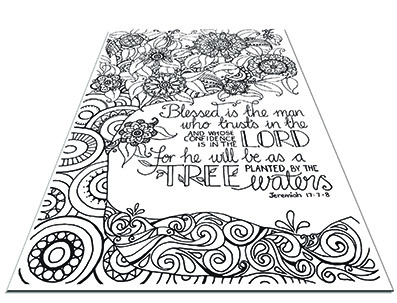 Blessed is the man
who trusts in the
AND WHOSE
CONFIDENCE
IS IN THE
LORD
for he will be as a
TREE
PLANTED BY THE
waters
Jeremiah 17:7-8